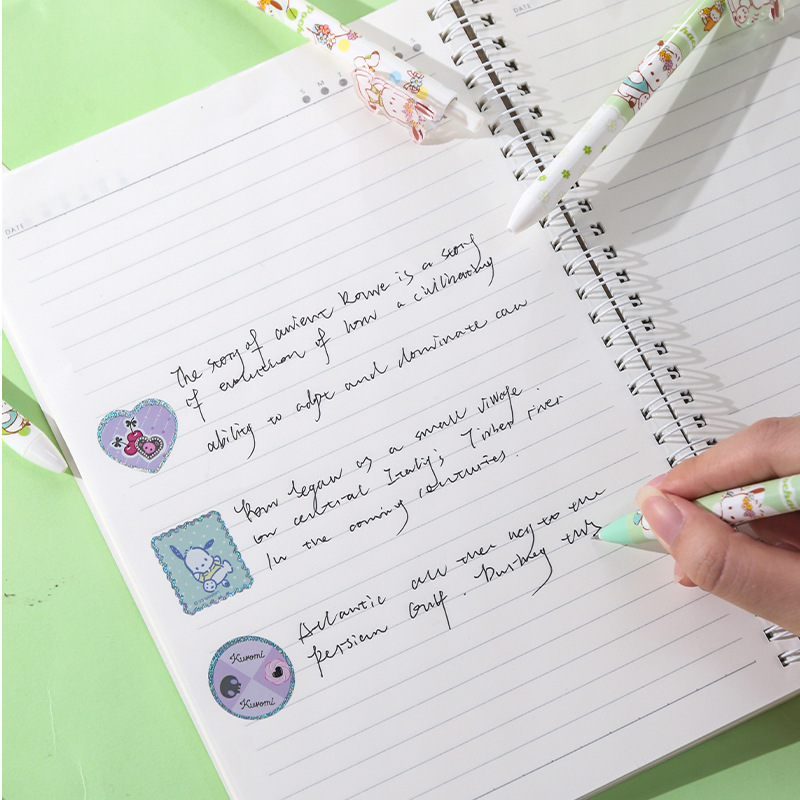 DATE
S M T F S
DATE
The story of anvient Rome is a story
of evolution of how a civilizating
ability to adpt and dominate can
Rom began as a small village
on central Italy's Timber river.
In the coming centuries.
Atlantic all the way to the
persian Gulf. During this
Kuromi
Kuromi